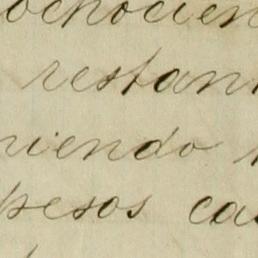 ochocien
restan
niendo
pesos ca